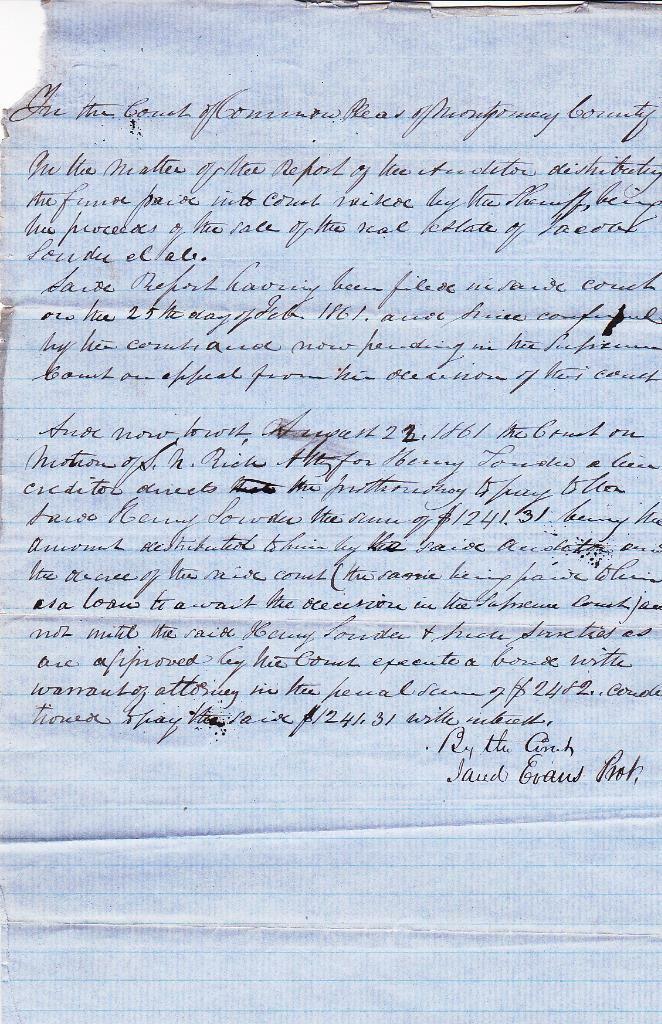 In the Court of Common Pleas of Montgomery County
In the matter of the Report of the Auditor distributing
the fund paid into court raised by the Sheriff, being
the proceeds of the sale of the real Estate of Jacob
Souder et al.
Said Report having been filed in said court
on the 25th day of Feb. 1861. and since confirmed
by the court and now pending in the Supreme
Court on appeal from the decision of this court
And now, to wit, August 22. 1861 the Court on
motion of S. N. Rich Atty for Henry Souder a lien
creditor directs the Prothonotary to pay to the
said Henry Souder the sum of $1241.31 being the
amount distributed to him by the said auditor and
the decree of the said court (the same being paid to him
as a loan to await the decision in the Supreme Court) and
not until the said Henry Souder & such sureties as
are approved by the Court execute a bond with
warrant of attorney in the penal sum of $2482. condi
tioned to pay the said $1241.31 with interest.
By the Court
Jared Evans Prot.